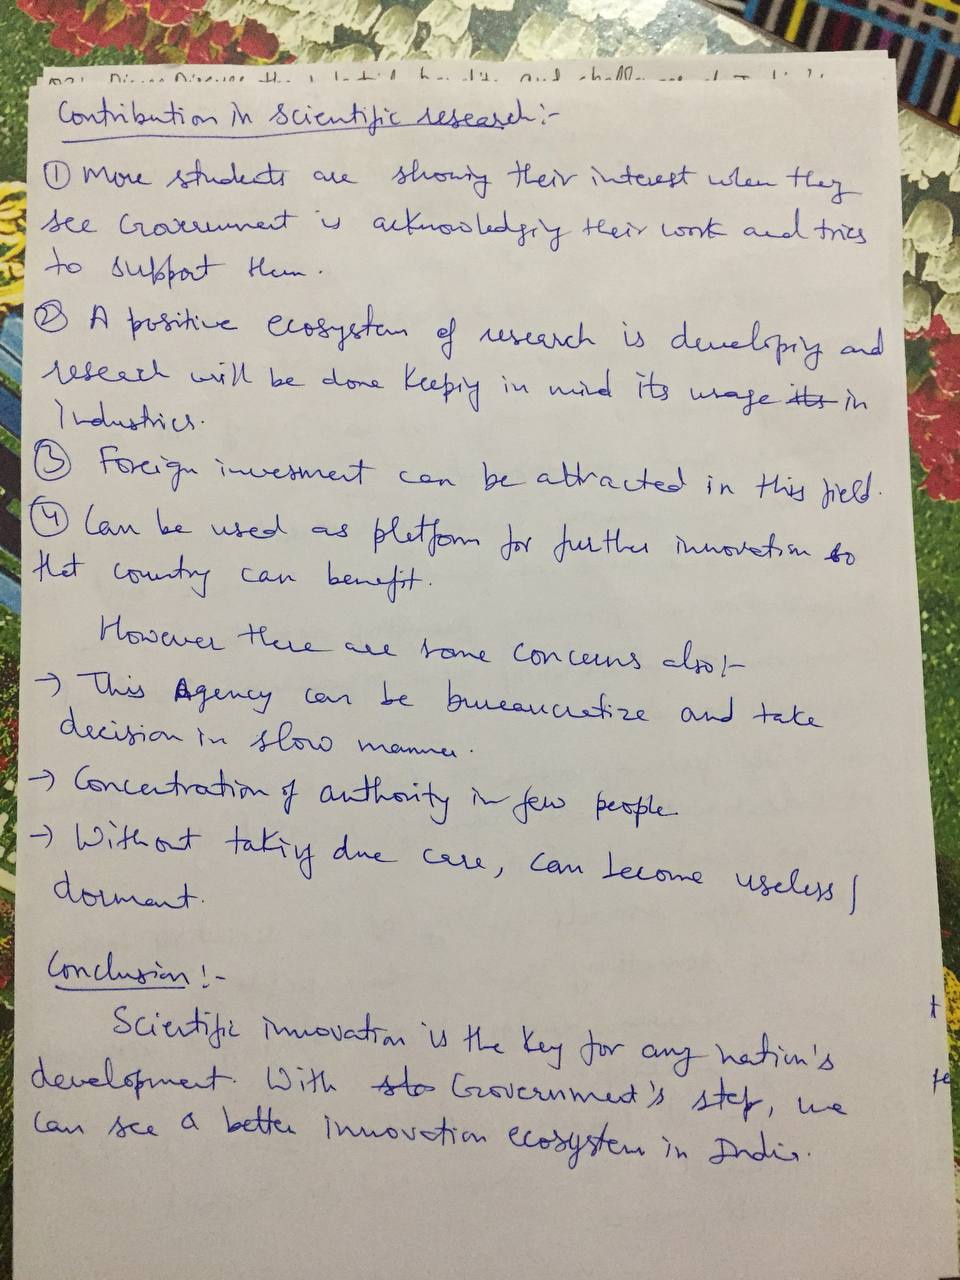 Discuss the
and challenges of
Contribution in scientific research:-
① More students are showing their interest when they
see Government is acknowledging their work and tries
to support them.
② A positive ecosystem of research is developing and
research will be done keeping in mind its usage its in
Industries.
③ Foreign invesment can be attracted in this field.
④ Can be used as platform for further innovation so
that country can benefit.
However there are some concerns also:-
→ This Agency can be bureaucratize and take
decision in slow manner.
→ Concentration of authority in few people
→ Without taking due care, can become useless/
dormant.
Conclusion:-
Scientific innovation is the key for any nation's
development. With Government's step, we
can see a better innovation ecosystem in India.